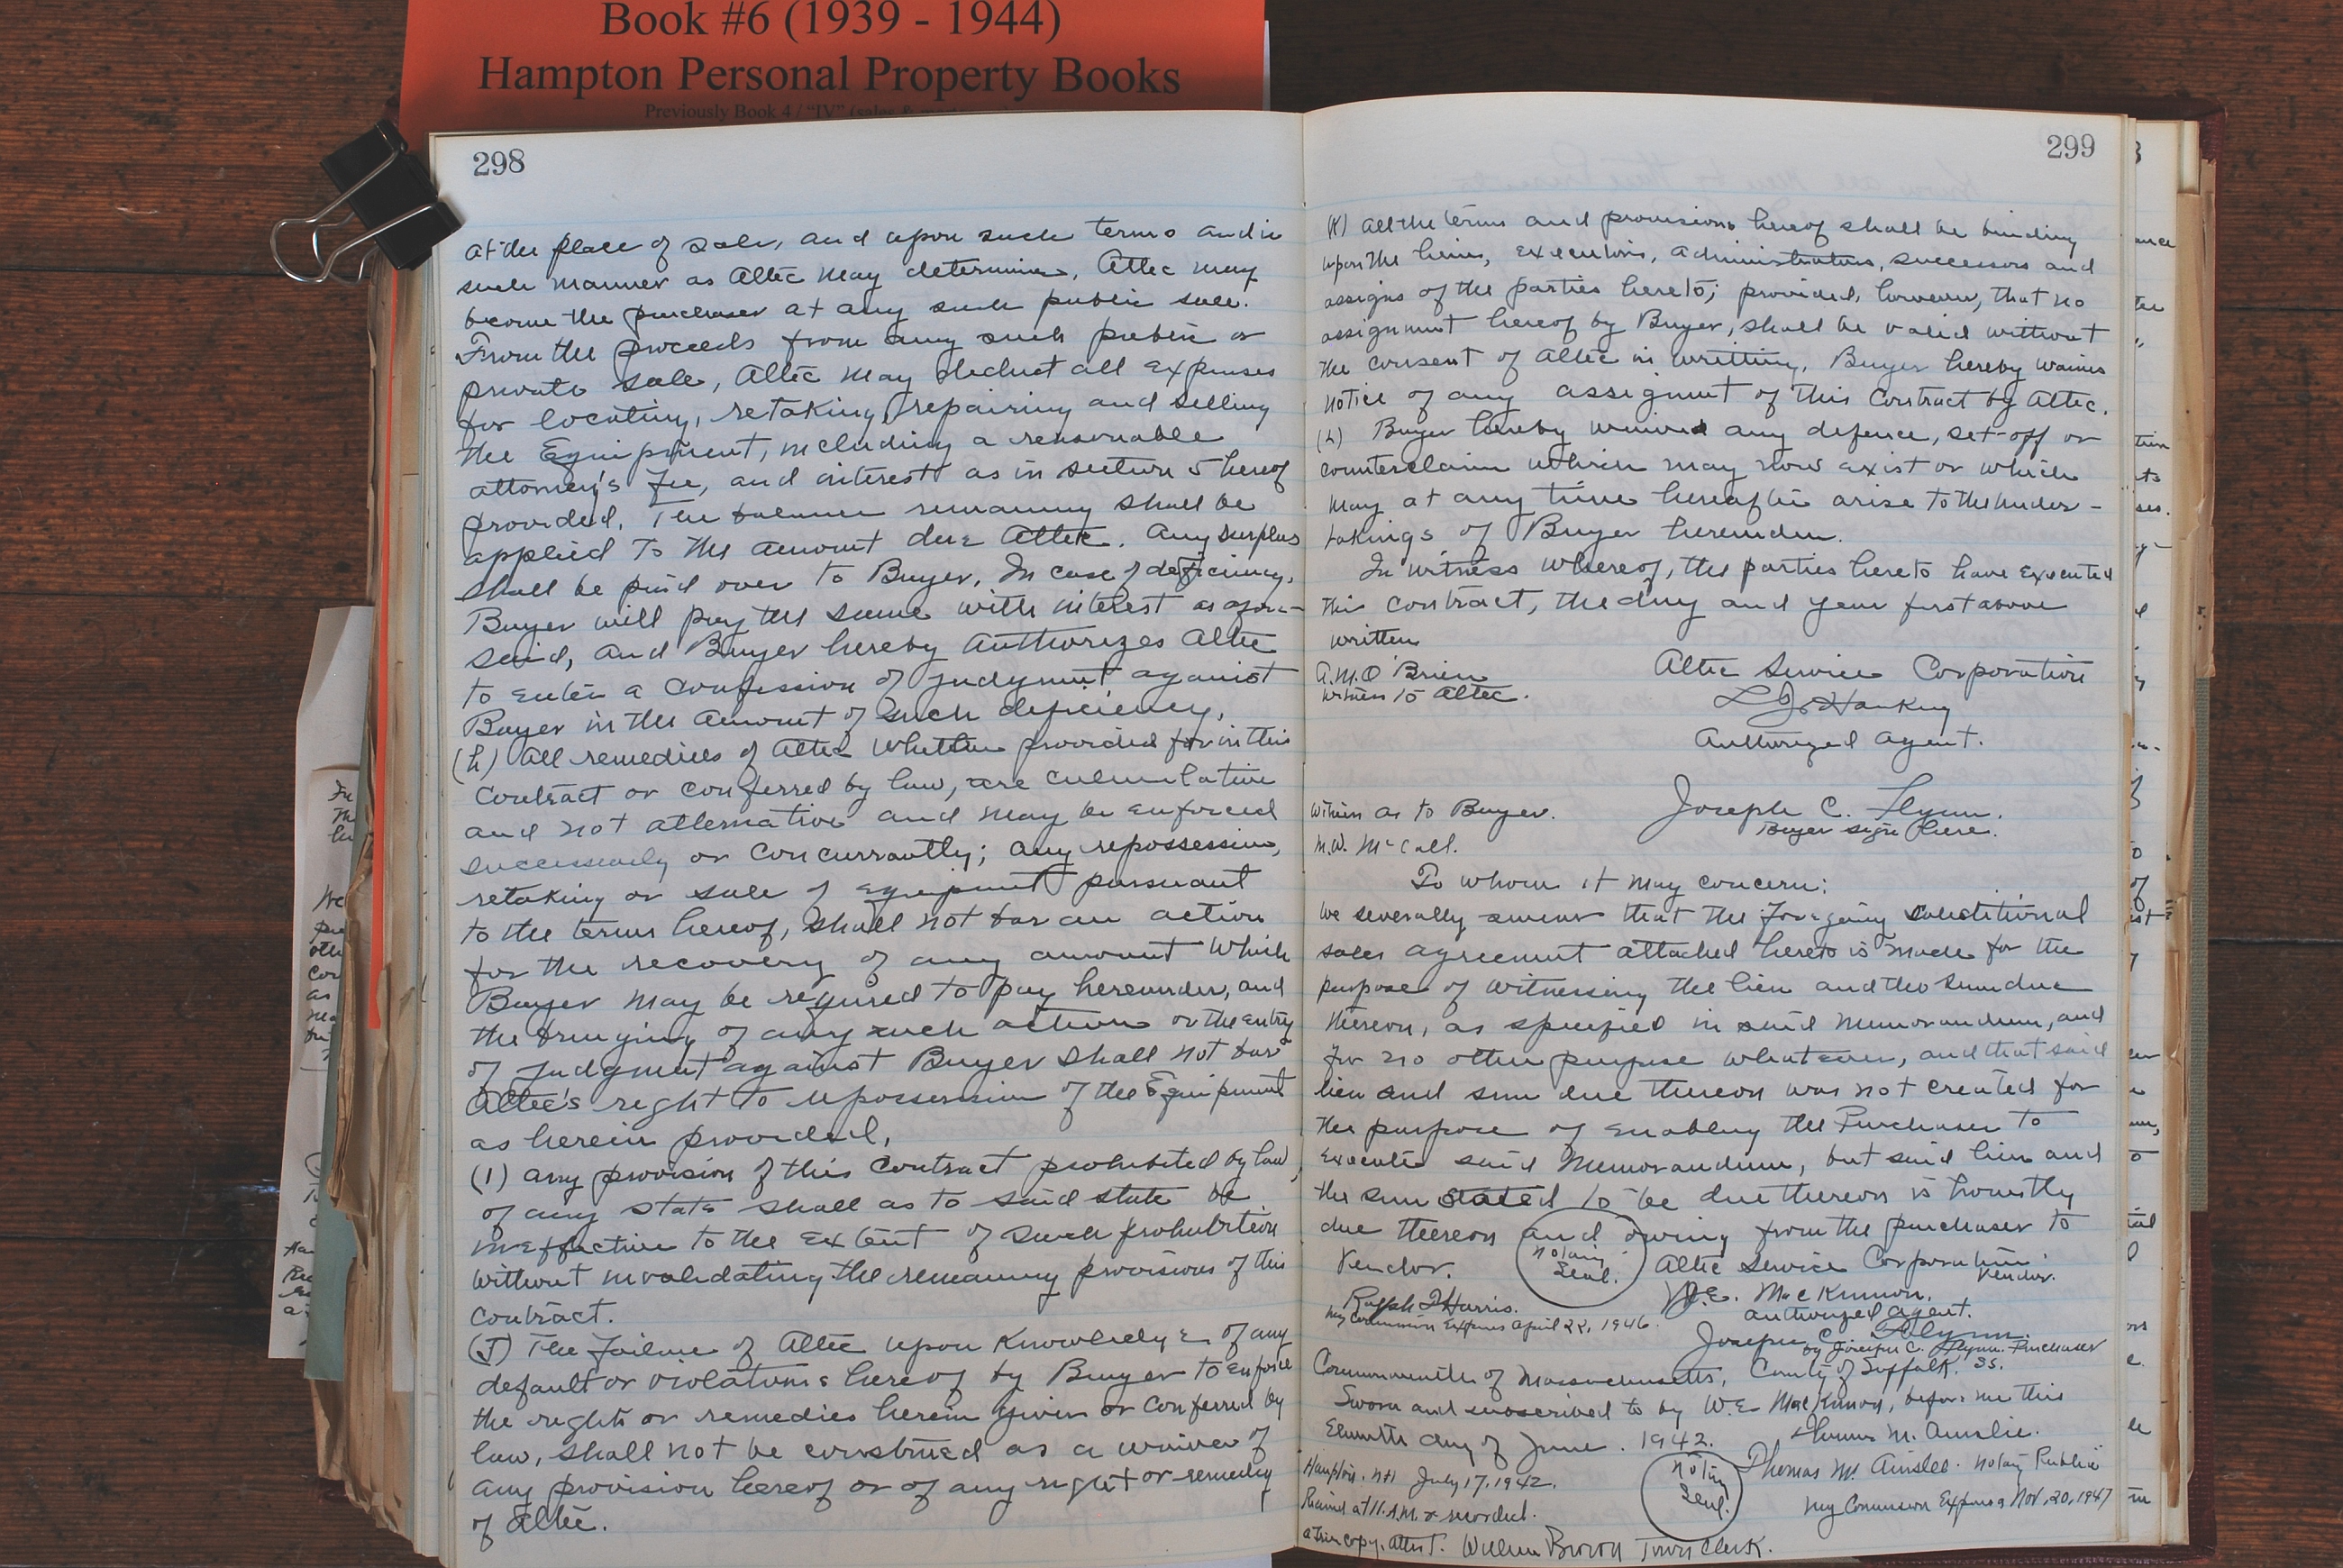 Book #6 (1939 - 1944)
Hampton Personal Property Books
Previously Book 4 / "IV" (sales &
298
at the place of sale, and upon such terms and in
such manner as Altec may determine, Altec may
become the purchaser at any such public sale.
From the proceeds from any such public or
private sale, Altec may deduct all expenses
for locating, retaking, repairing and selling
the Equipment, including a reasonable
attorney's fee, and interest as in section 5 hereof
provided. The balance remaining shall be
applied to the amount due Altec. Any surplus
shall be paid over to Buyer, In case of deficiency,
Buyer will pay the same with interest as afore-
said, and Buyer hereby authorizes Altec
to enter a confession of judgment against
Buyer in the amount of such deficiency.
(h) All remedies of Altec whether provided for in this
contract or conferred by law, are cumulative
and not alternative and may be enforced
successively or concurrantly; any repossession,
retaking or sale of equipment pursuant
to the terms hereof, shall not bar an action
for the recovery of any amount which
Buyer may be required to pay hereunder, and
the bringing of any such action or the entry
of judgment against Buyer shall not bar
Altec's right to repossession of the Equipment
as herein provided,
(1) any provision of this contract prohibited by law,
of any state shall as to said state be
ineffective to the extent of such prohibition
without invalidating the remaining provisions of this
contract.
(J) The failure of Altec upon knowledge of any
default or violations hereof by Buyer to enforce
the rights or remedies herein given or conferred by
law, shall not be construed as a waiver of
any provision hereof or of any right or remedy
of Altec.
299
(K) all the terms and provisions hereof shall be binding
upon the heirs, executors, administrators, successors and
assigns of the parties hereto; provided, however, that no
assignment hereof by Buyer, shall be valid without
the consent of Altec in writting. Buyer hereby waives
notice of any assigment of this contract by Altec.
(L) Buyer hereby waives any defence, set-off or
counterclaim which may now exist or which
may at any time hereafter arise to the under-
takings of Buyer hereunder.
In witness whereof, the parties hereto have executed
this contract, the day and year first above
written
A.M.O'Brien
witness to Altec.
Altec Service Corporation
Hanking
Authorized agent.
Witness as to Buyer.
M.W. McCall.
Joseph C. Flynn.
Buyer sign here.
To whom it may concern:
We severally swear that the foregoing conditional
sales agreement attached hereto is made for the
purpose of witnessing the lien and the sum due
thereon, as specified in said memorandum, and
for no other purpose whatever, and that said
lien and sum due thereon was not created for
the purpose of enabling the Purchaser to
execute said memorandum, but said lien and
the sum stated to be due thereon is honestly
due thereon and owing from the purchaser to
Vendor.
Notary
Seal.
Altec Service Corporation
Vendor.
W.E. MacKinnon.
authorized agent.
Ralph Harris.
My Commission Expires April 22, 1946.
Joseph C. Flynn.
by Joseph C. Flynn. Purchaser
Commonwealth of Massachusetts, County of Suffolk. ss.
Sworn and subscribed to by W.E. MacKinnon, before me this
Eleventh day of June. 1942.
Thomas M. Ainslie.
Notary
Seal.
Thomas M. Ainslee. Notary Public
My Commission Expires Nov. 20, 1947
Hampton, NH July 17, 1942.
Received at 11. A.M. & recorded.
a true copy, attest. William Brown Town Clerk.